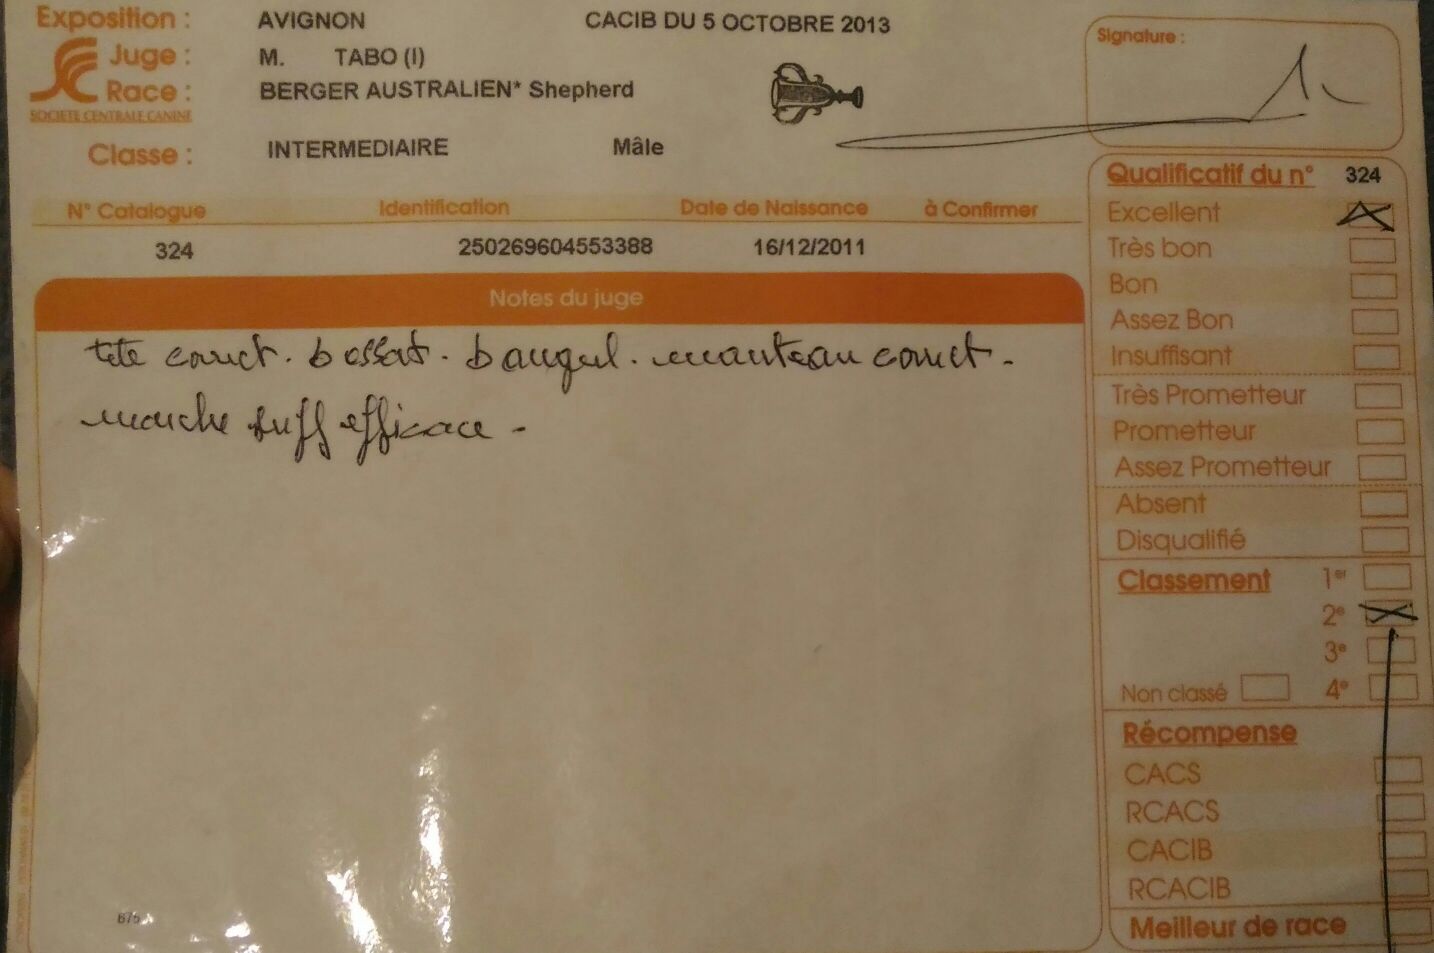 Exposition : AVIGNON CACIB DU 5 OCTOBRE 2013
Juge : M. TABO (I)
Race : BERGER AUSTRALIEN* Shepherd
SOCIETE CENTRALE CANINE
Classe : INTERMEDIAIRE Mâle
Signature :
N° Catalogue Identification Date de Naissance à Confirmer
324 250269604553388 16/12/2011
Notes du juge
tete correct. manteau correct.
marche suff efficace.
B75
Qualificatif du n° 324
Excellent
Très bon
Bon
Assez Bon
Insuffisant
Très Prometteur
Prometteur
Assez Prometteur
Absent
Disqualifié
Classement 1er
2e
3e
Non classé 4e
Récompense
CACS
RCACS
CACIB
RCACIB
Meilleur de race